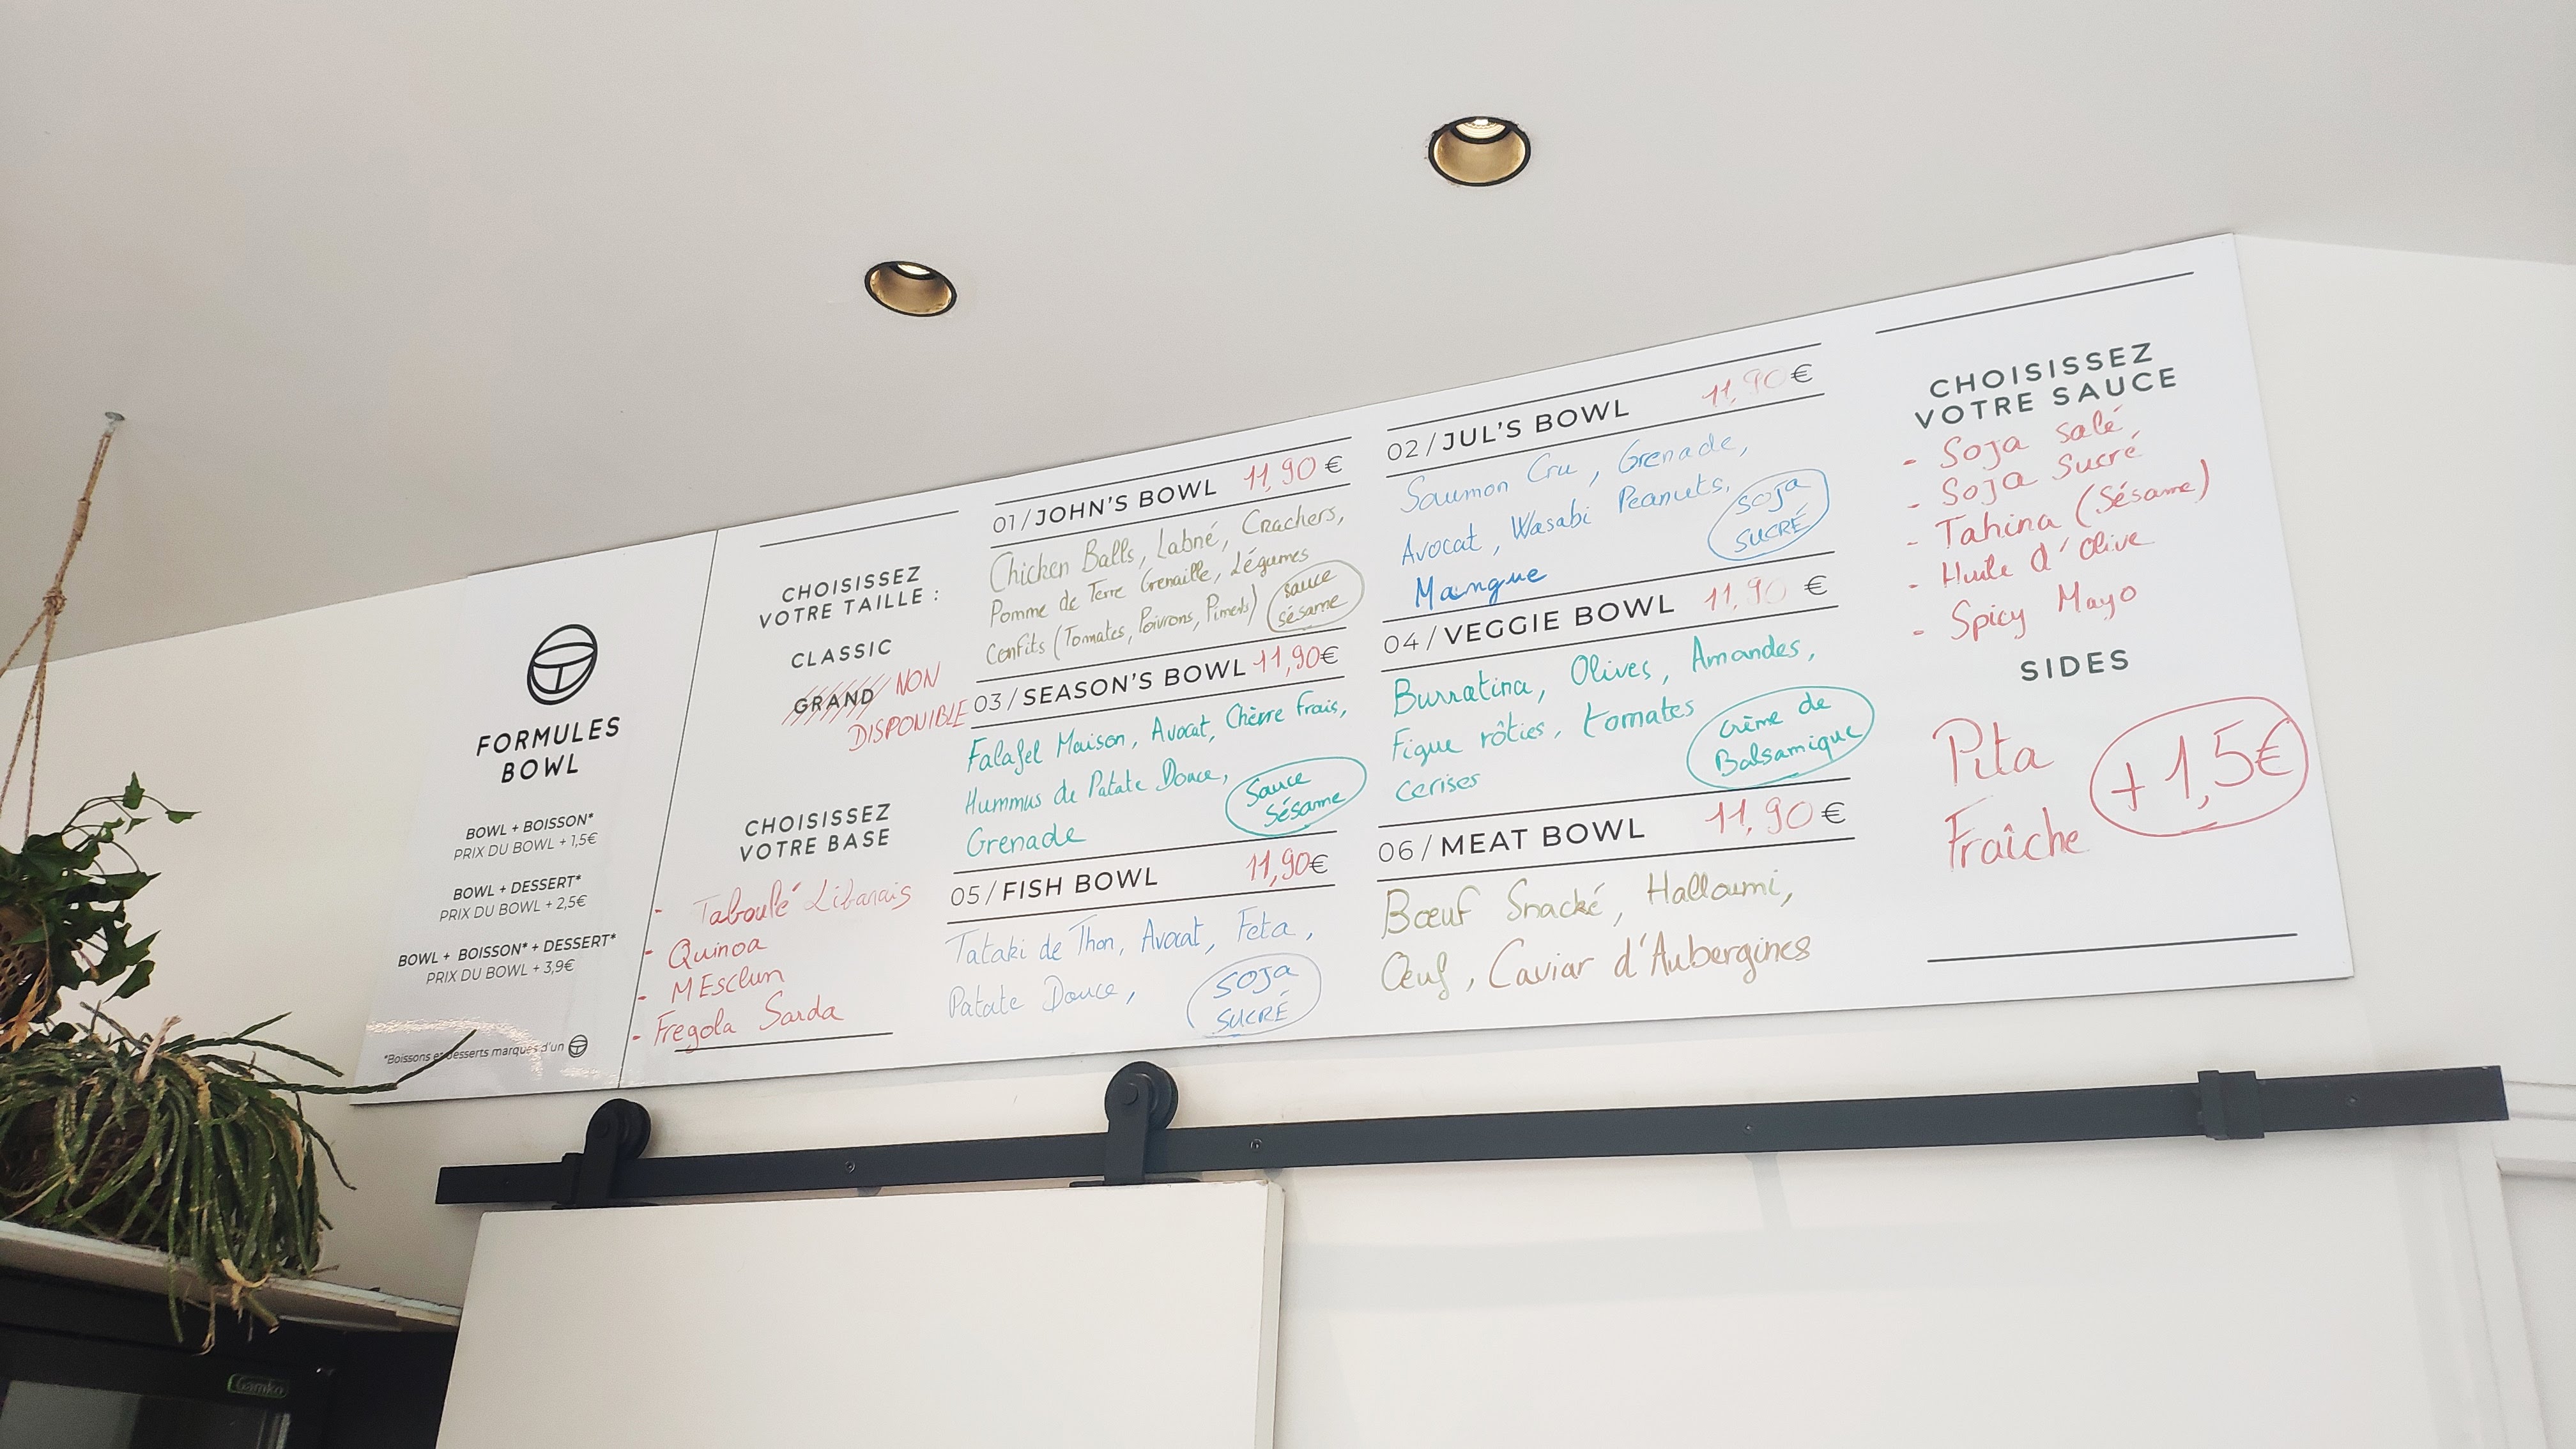 FORMULES
BOWL
BOWL + BOISSON*
PRIX DU BOWL + 1,5€
BOWL + DESSERT*
PRIX DU BOWL + 2,5€
BOWL + BOISSON* + DESSERT*
PRIX DU BOWL + 3,9€
*Boissons et desserts marqués d'un
CHOISISSEZ
VOTRE TAILLE :
CLASSIC
GRAND NON
DISPONIBLE
CHOISISSEZ
VOTRE BASE
- Taboulé Libanais
- Quinoa
- MEsclun
- Fregola Sarda
01/JOHN'S BOWL 11,90 €
Chicken Balls, Labné, Crackers,
Pomme de Terre Grenaille, Légumes
Confits (Tomates, Poivrons, Piments)
sauce
sésame
03/SEASON'S BOWL 11,90€
Falafel Maison, Avocat, Chèvre frais,
Hummus de Patate Douce,
Grenade
Sauce
Sésame
05/FISH BOWL 11,90€
Tataki de Thon, Avocat, Feta,
Patate Douce,
SOJA
SUCRÉ
02/JUL'S BOWL 11,90 €
Saumon Cru, Grenade,
Avocat, Wasabi Peanuts,
Mangue
SOJA
SUCRÉ
04/VEGGIE BOWL 11,90 €
Burratina, Olives, Amandes,
Figue rôties, tomates
cerises
Crème de
Balsamique
06/MEAT BOWL 11,90 €
Bœuf Snacké, Halloumi,
Œuf, Caviar d'Aubergines
CHOISISSEZ
VOTRE SAUCE
- Soja salé,
- Soja Sucré
- Tahina (Sésame)
- Huile d'Olive
- Spicy Mayo
SIDES
Pita
Fraîche
+ 1,5€
Gamko